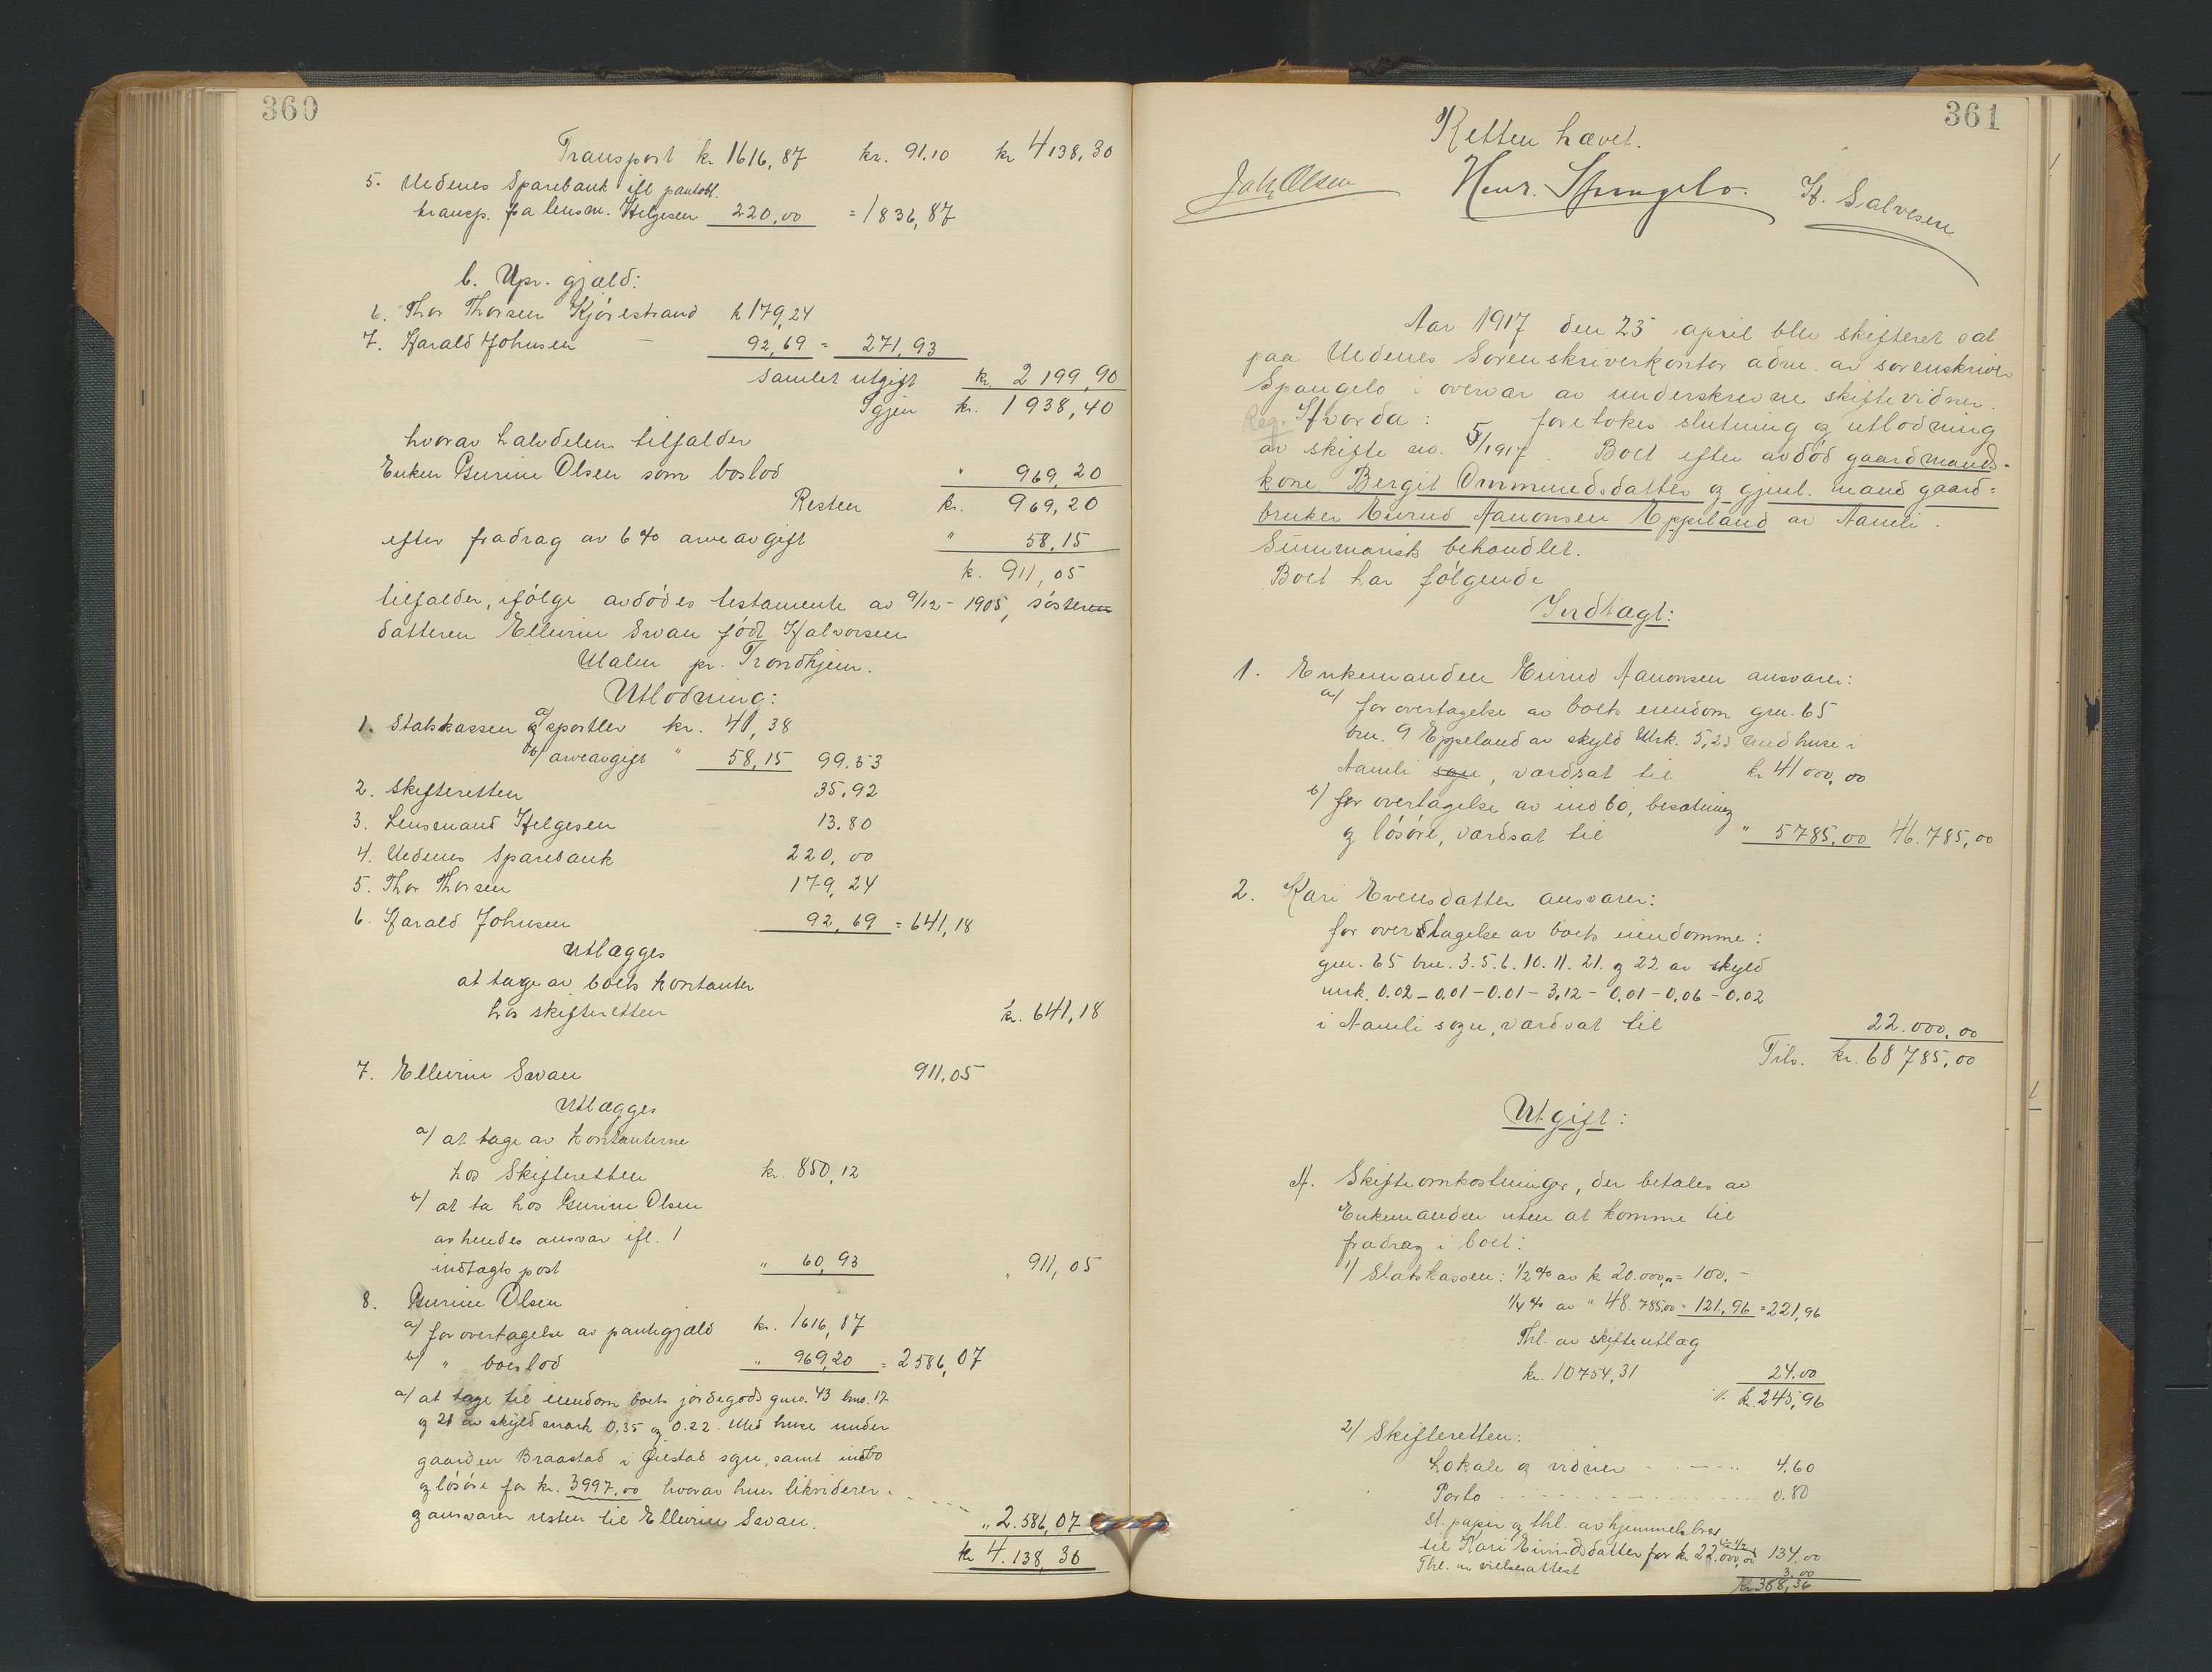 360
Transport kr 1616,87 kr. 91.10 kr 4138,30
5. Nedenes Sparebank ifl pantobl.
transp. fra lensm. Helgesen 220,00 = 1836,87
b. Upr. gjæld:
6. Thor Thorsen Kjörestrand k 179,24
7. Harald Johnsen — 92,69 = 271,93
Samlet utgift kr. 2199,90
Igjen kr. 1938,40
hvorav halvdelen tilfalder
Enken Gurine Olsen som boslod " 969,20
Resten kr. 969,20
efter fradrag av 6% arveavgift " 58.15
k. 911,05
tilfalder, ifölge avdödes testamente av 9/12 - 1905, söster
datteren Ellevine Svan född Halvorsen
Malm pr. Trondhjem.
Utlodning:
1. Statskassen a/ sportler kr. 41,38
b/ arveavgift " 58,15 99.53
2. Skifteretten 35,92
3. Lensmand Helgesen 13.80
4. Nedenes Sparebank 220,00
5. Thor Thorsen 179,24
6. Harald Johnsen 92,69 = 641,18
Utlægges
at tage av boets kontanter
hos skifteretten kr. 641,18
7. Ellevine Svan 911,05
Utlægges
a/ at tage av kontanterne
hos Skifteretten kr. 850,12
b/ at ta hos Gurine Olsen
av hendes ansvar ifl. 1
indtagts post " 60,93 " 911,05
8. Gurine Olsen
a/ for overtagelse av pantegjæld kr. 1616,87
b/ " boslod " 969,20 = 2586,07
a/ at tage til eiendom boets jordegods gno. 43 bno. 17
og 21 av skyld mark 0,35 og 0.22. Med huse under
gaarden Braastad i Öiestad sgn, samt indbo
og lösöre for kr. 3997.00 hvorav hun likviderer
og ansvarer resten til Ellevine Svan. " 2.586,07
kr 4.138,30
361
Retten hævet.
Joh. Olsen Henr. Spangelo. H. Salvesen
Aar 1917 den 25 april blev skifteret sat
paa Nedenes Sorenskriverkontor adm. av sorenskriver
Spangelo i overvær av underskrevne skiftevidner.
Reg. Hvorda: foretokes slutning og utlodning
av skifte no. 5/1917. Boet efter avdöd gaardmands-
kone Berget Ommundsdatter og gjenl. mand gaard=
bruker Eivind Aanonsen Eppeland av Aamli.
Summarisk behandlet.
Boet har fölgende
Indtægt:
1. Enkemanden Eivind Aanonsen ansvarer:
a/ for overtagelse av boets eiendom grn. 65
brn. 9 Eppeland av skyld Mrk. 5,23 med huse i
Aamli sogn, værdsat til kr 41000,00
b/ for overtagelse av indbo, besætning
og lösöre, værdsat til " 5785,00 46.785,00
2. Kari Evensdatter ansvarer:
for overtagelse av boets eiendomme:
grn. 65 brn. 3. 5. 6. 10. 11. 21. og 22 av skyld
mrk. 0.02 - 0,01 - 0.01 - 3,12 - 0,01 - 0,06 - 0.02
i Aamli sogn, værdsat til 22.000,00
Tils. kr. 68785,00
Utgift:
A. Skifteomkostninger, der betales av
Enkemanden uten at komme til
fradrag i boet:
1/ Statskassen: 1/2% av k 20.000,00 = 100.-
1/4% av " 48.785,00 = 121,96 = 221,96
Thl. av skifteutlæg
kr. 10754,31 24.00
./. kr. 245,96
2/ Skifteretten:
Lokale og vidner 4.60
Porto 0.80
st. papir og thl. av hjemmelsbrev
til Kari Eivindsdatter for kr 22.000,00 134.00
Thl. av vielsesattest 3.00
kr 388,36